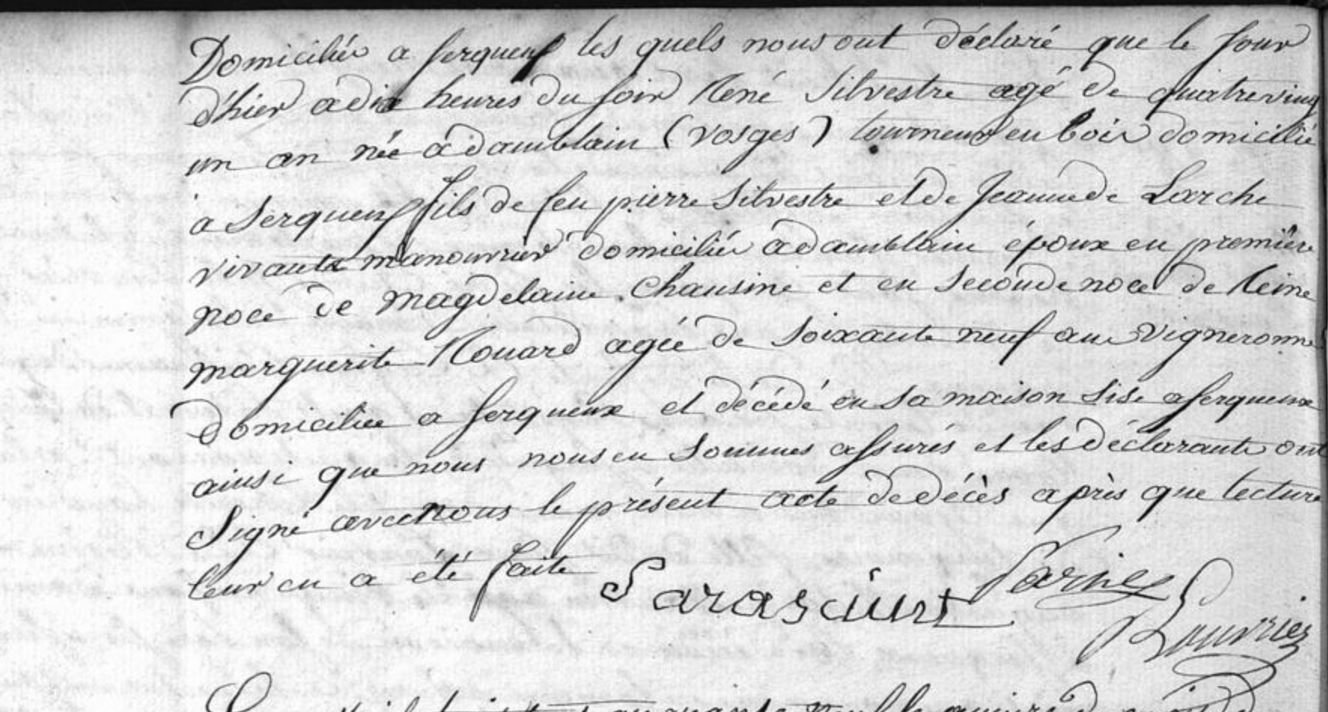 Domicilié a serqueux les quels nous ont déclaré que le jour
d'hier a dix heures du soir René Silvestre agé de quatre vingt
un an née a damblain (vosges) tourneur en bois domicilié
a Serqueux fils de feu pierre Silvestre et de Jeanne de Larche
vivants manouvrier domicilié a damblain epoux en première
noce de magdelaine Chausine et en seconde noce de Reine
marguerite Rouard agée de soixante neuf ans Vigneronne
Domiciliée a serqueux et décédé en sa maison sise a serqueux
ainsi que nous nous en sommes assurés et les déclarants ont
Signé avec nous le présent acte de décès après que lecture
leur en a été faite